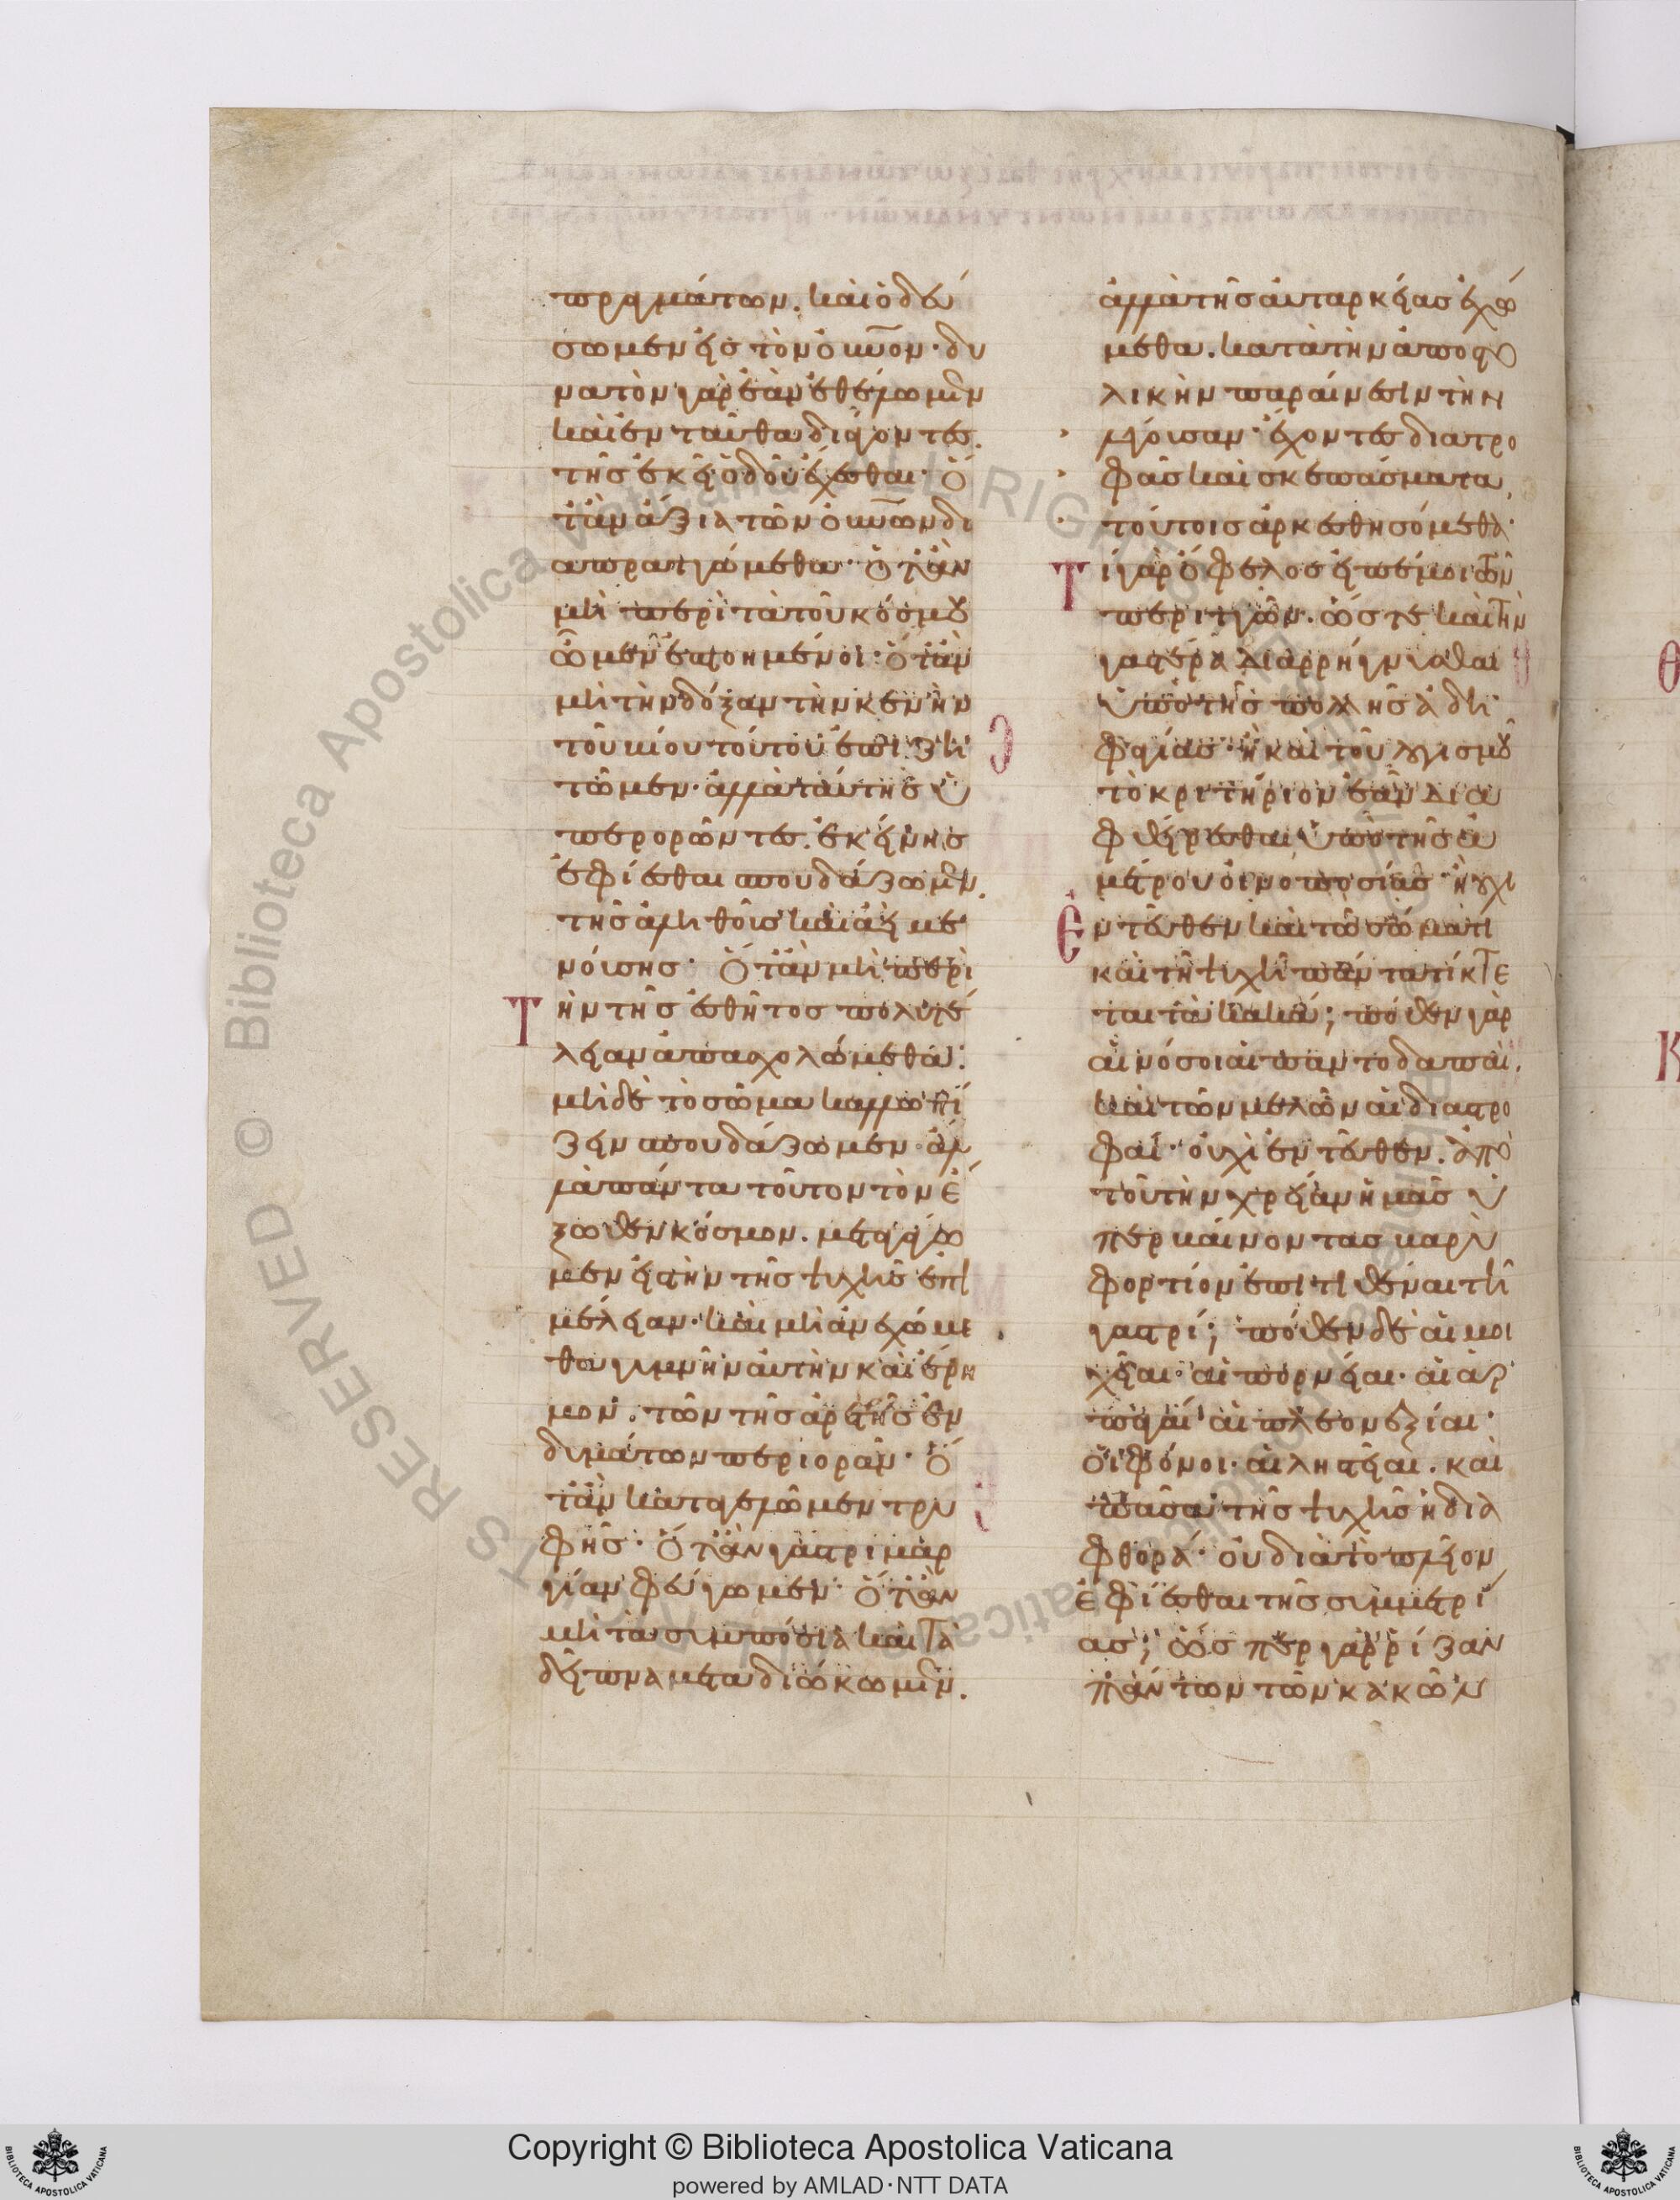 πραγμάτων. καὶ ὁδεύ
σωμεν εἰς τὸν οὐνον· δυ
νατὸν γὰρ ἐὰν ἐθέλωμεν
καὶ ἐνταῦθα διάγοντες.
τῆς ἐκεῖ ὁδοῦ ἔχεσθαι· ὅ
τὰν ἄξια τῶν οὐνων δι
απραττώμεθα· ὅταν
μὴ περὶ τὰ τοῦ κόσμου
ὦμεν ἐπτοημένοι· ὅταν
μὴ τὴν δόξαν τὴν κενὴν
τοῦ βίου τούτου ἐπιζη
τῶμεν· ἀλλὰ ταύτης ὑ
περορῶντες. ἐκείνης
ἐφίεσθαι σπουδάζωμεν.
τῆς ἀληθοῦς καὶ ἀεὶ με
νούσης· Ὅταν μὴ περὶ
τὴν τῆς ἐσθῆτος πολυτέ
λειαν ἀπασχολώμεθα·
μὴ δὲ τὸ σῶμα καλλωπί
ζειν σπουδάζωμεν· ἀλ
λὰ πάντα τοῦτον τὸν ἔ
ξωθεν κόσμον. μεταγάγω
μεν εἰς τὴν τῆς ψυχῆς ἐπι
μέλειαν· καὶ μὴ ἀνεχώμε
θα γυμνὴν αὐτὴν καὶ ἔρη
μον. τῶν τῆς ἀρετῆς ἐν
δυμάτων περιορᾶν· Ὅ
τὰν καταγελῶμεν τρυ
φῆς· Ὅταν γαστριμαρ
γίαν φεύγωμεν· ὅταν
μὴ τὰ συμπόσια καὶ τὰ
δεῖπνα μεταδιώκωμεν.
ἀλλὰ τῆς αὐταρκείας ἐχώ
μεθα. κατὰ τὴν ἀποστο
λικὴν παραίνεσιν τὴν
λέγουσαν· ἔχοντες διατρο
φὰς καὶ σκεπάσματα,
τούτοις ἀρκεσθησόμεθα·
Τί γὰρ ὄφελος εἰπέ μοι τῶν
περιττῶν. ὥστε καὶ τὴν
γαστέρα διαρρήγνυσθαι
ὑπὸ τῆς πολλῆς ἀδη
φαγίας· ἢ καὶ τοῦ λογισμοῦ
τὸ κριτήριον ἐᾶν δια
φθείρεσθαι ὑπὸ τῆς ἀ
μέτρου οἰνοποσίας· ἢ οὐχὶ
ἐντεῦθεν καὶ τῷ σώματι
καὶ τῇ ψυχῇ πάντα τίκτε
ται τὰ κακά; πόθεν γὰρ
αἱ νόσοι αἱ παντοδαπαί.
καὶ τῶν μελῶν αἱ διαστρο
φαί· οὐχὶ ἐντεῦθεν. ἀπὸ
τοῦ τὴν χρείαν ἡμᾶς ὑ
περβαίνοντας βαρὺ
φορτίον ἐπιτιθέναι τῇ
γαστρί; πόθεν δὲ αἱ μοι
χεῖαι· αἱ πορνεῖαι· αἱ ἁρ
παγαί· αἱ πλεονεξίαι·
οἱ φόνοι· αἱ λῃστεῖαι. καὶ
πᾶσα τῆς ψυχῆς ἡ δια
φθορά· οὐ διὰ τὸ πλεῖον
ἐφίεσθαι τῆς συμμετρί
ας; ὥσπερ γὰρ ῥίζαν
πάντων τῶν κακῶν
Copyright © Biblioteca Apostolica Vaticana
powered by AMLAD·NTT DATA